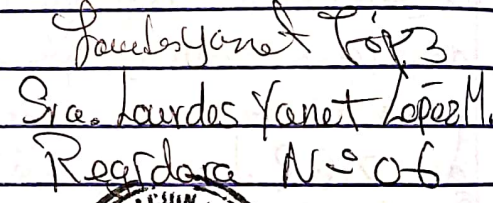 Lourdes Yanet López
Sra. Lourdes Yanet López M.
Regidora Nº 06